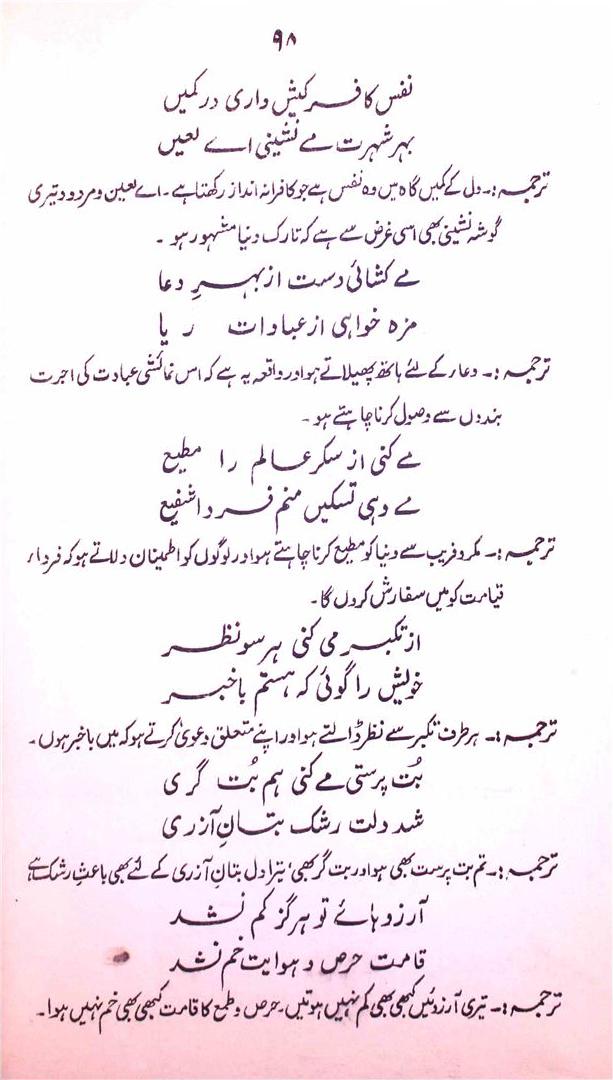 ۹۸
نفس کافر کیش داری در کمیں
بہر شہرت مے نشینی اے لعیں
ترجمہ :۔ دل کے کمیں گاہ میں وہ نفس ہے جو کافرانہ انداز رکھتا ہے ۔ اے لعین و مردود تیری
گوشہ نشینی بھی اسی غرض سے ہے کہ تارک دنیا مشہور ہو ۔
مے کشائی دست از بہرِ دعا
مزہ خواہی از عبادات ریا
ترجمہ :۔ دعاء کے لئے ہاتھ پھیلاتے ہو اور واقعہ یہ ہے کہ اس نمائشی عبادت کی اجرت
بندوں سے وصول کرنا چاہتے ہو ۔
مے کنی از سکر عالم را مطیع
مے دہی تسکیں منم فردا شفیع
ترجمہ :۔ مکر و فریب سے دنیا کو مطیع کرنا چاہتے ہو اور لوگوں کو اطمینان دلاتے ہو کہ فرداء
قیامت کو میں سفارش کروں گا ۔
از تکبر می کنی ہر سو نظر
خولیش را گوئی کہ ہستم باخبر
ترجمہ :۔ ہر طرف تکبر سے نظر ڈالتے ہو اور اپنے متعلق دعویٰ کرتے ہو کہ میں باخبر ہوں ۔
بُت پرستی مے کنی ہم بُت گری
شد دلت رشک بتانِ آزری
ترجمہ :۔ تم بت پرست بھی ہو اور بت گر بھی، تیرا دل بتانِ آزری کے لئے بھی باعثِ رشک ہے
آرزو ہائے تو ہرگز کم نشد
قامت حرص و ہوایت خم نشد
ترجمہ :۔ تیری آرزوئیں کبھی بھی کم نہیں ہوتیں ۔ حرص و طمع کا قامت کبھی بھی خم نہیں ہوا ۔